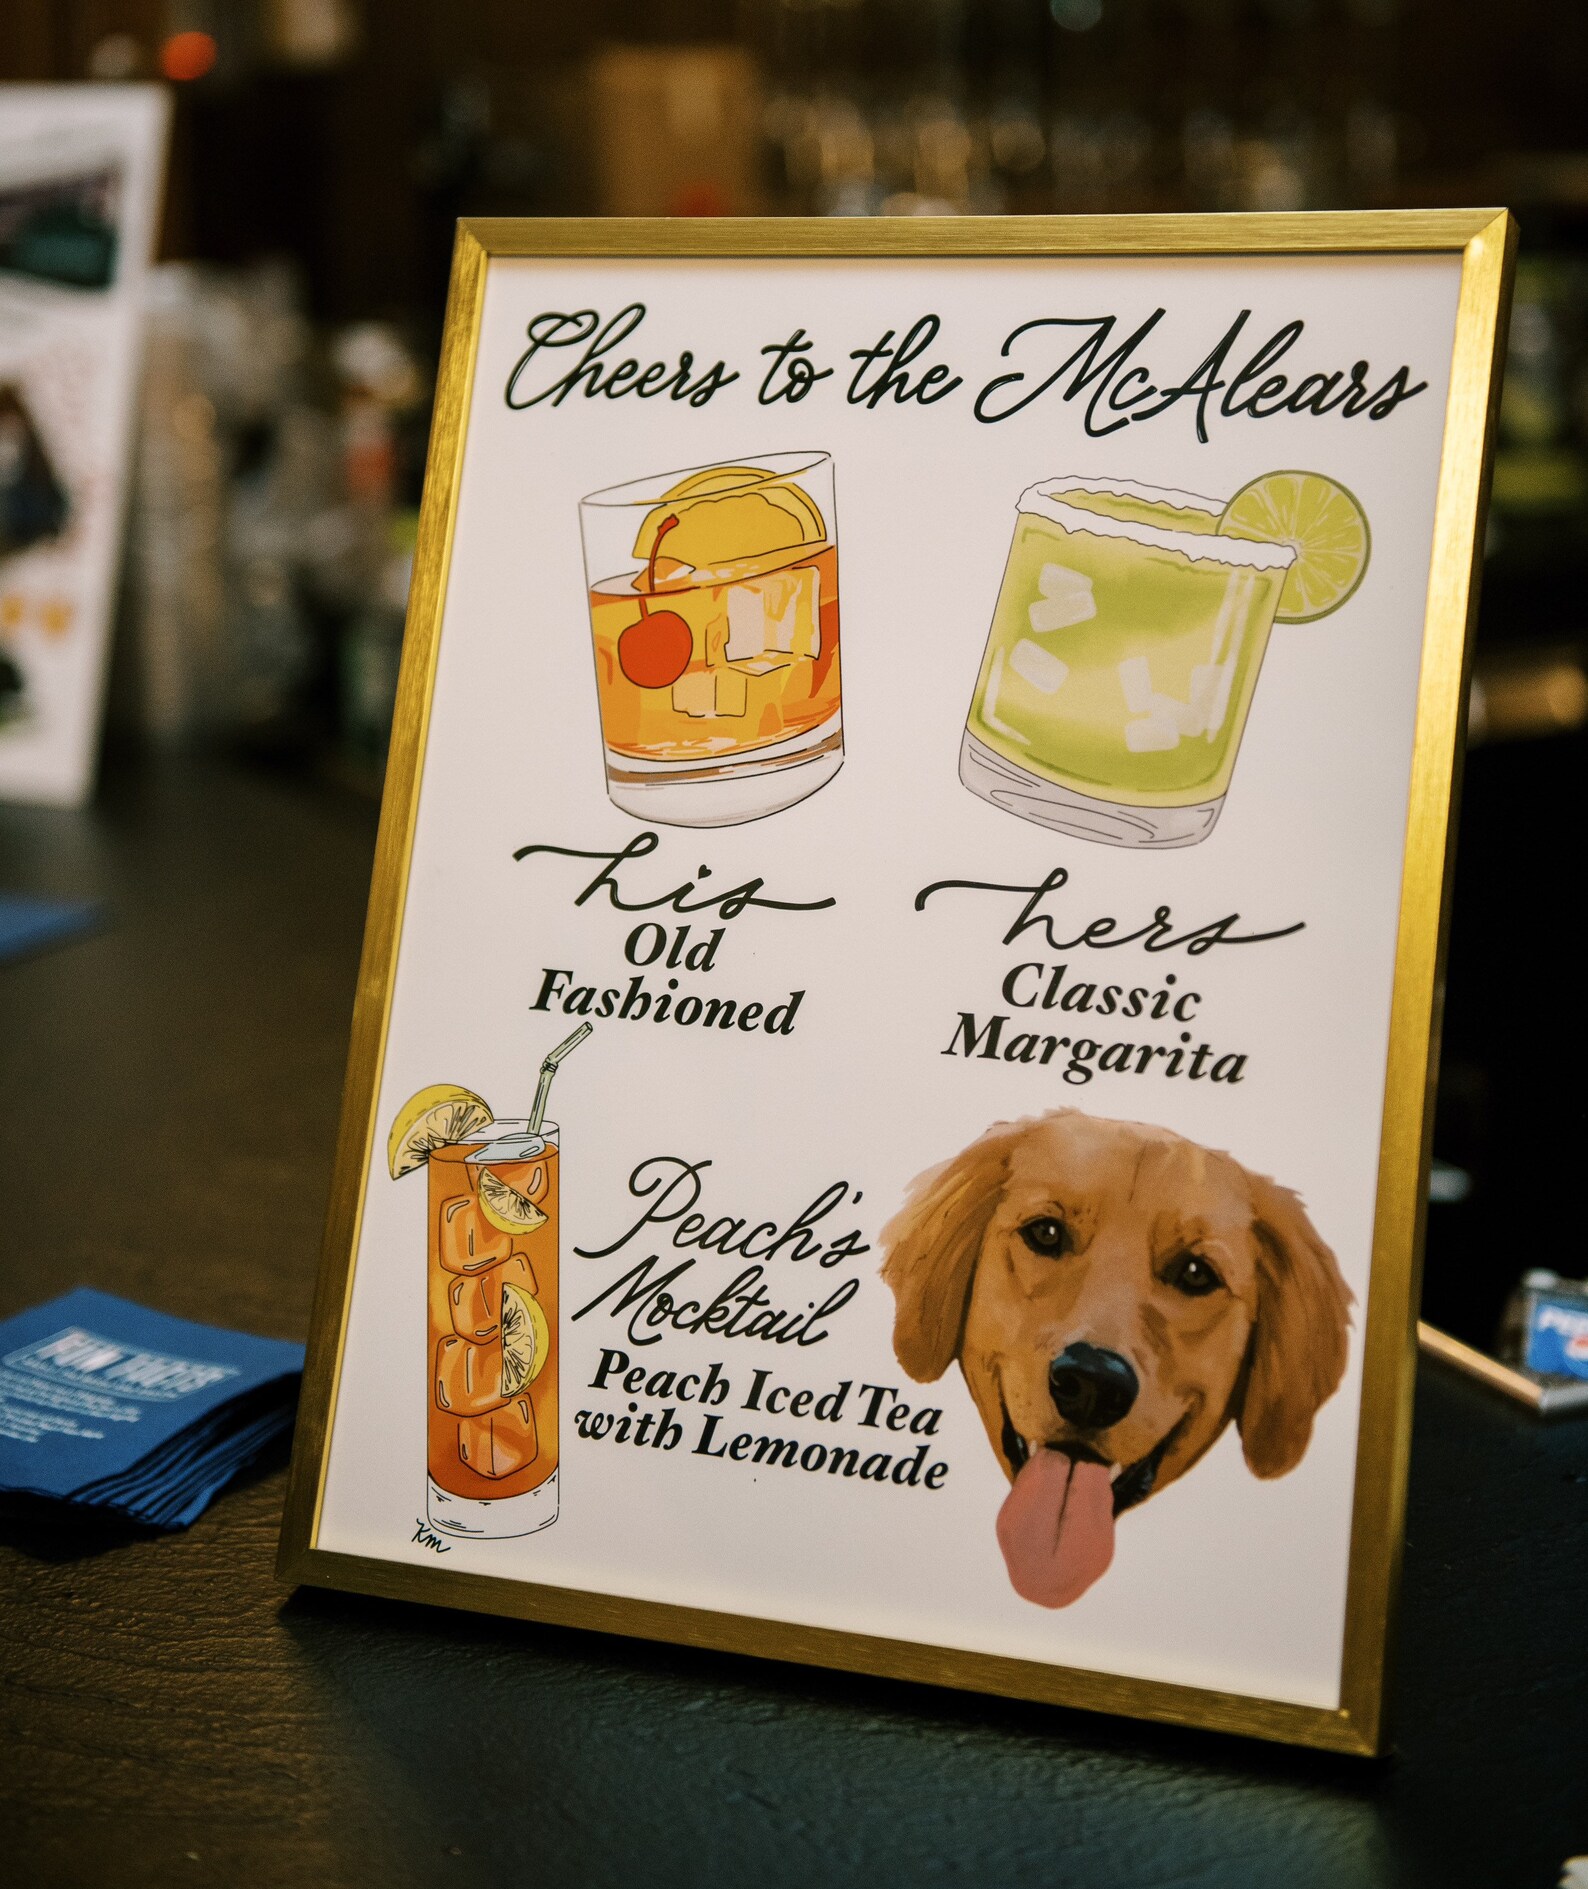 Cheers to the McAlears
his
Old
Fashioned
hers
Classic
Margarita
Peach's
Mocktail
Peach Iced Tea
with Lemonade
Km
FUN FACTS